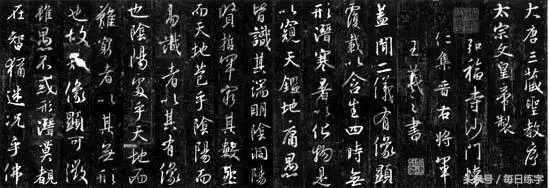 大唐三藏聖教序
太宗文皇帝製
弘福寺沙門懷
仁集晉右將軍
王羲之書
蓋聞二儀有像顯
覆載以含生四時無
形潛寒暑以化物是
以窺天鑑地庸愚
皆識其端明陰洞陽
賢哲罕窮其數然
而天地苞乎陰陽而
易識者以其有像
也陰陽處乎天地而
難窮者以其無形
也故知像顯可徵
雖愚不惑形潛莫覩
在智猶迷況乎佛
头条号／每日练字